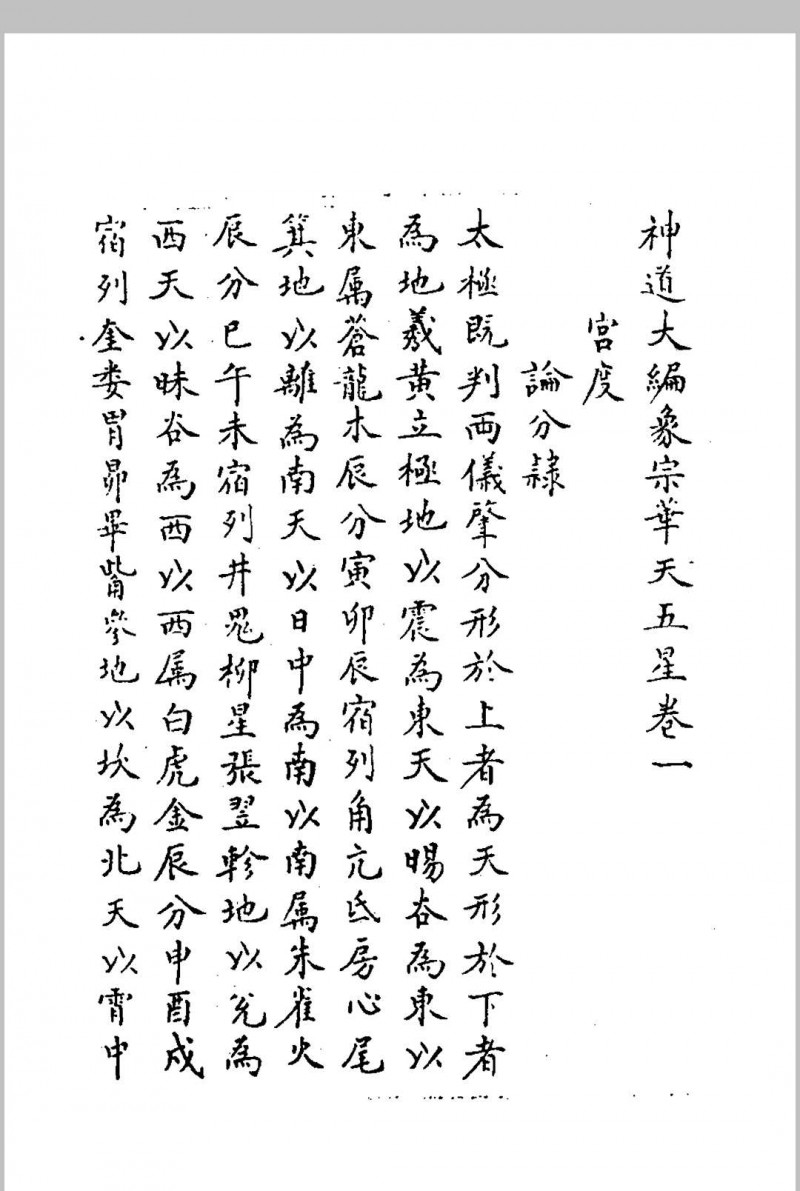 神道大編象宗華天五星卷一
宮度
論分隸
太極既判两儀肇分形於上者為天形於下者
為地羲黄立極地以震為東天以暘谷為東以
東属蒼龍木辰分寅卯辰宿列角亢氐房心尾
箕地以離為南天以日中為南以南属朱雀火
辰分巳午未宿列井鬼柳星張翌軫地以兊為
西天以昧谷為西以西属白虎金辰分申酉戍
宿列奎娄胃昴畢觜參地以坎為北天以霄中